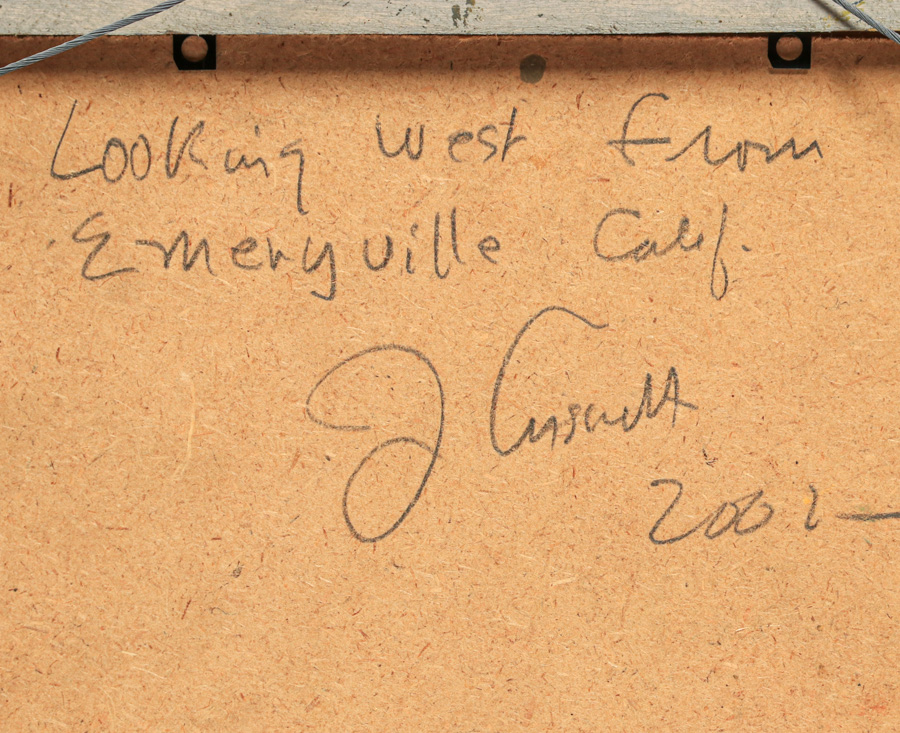 Looking west from
Emeryville Calif.
J
2002